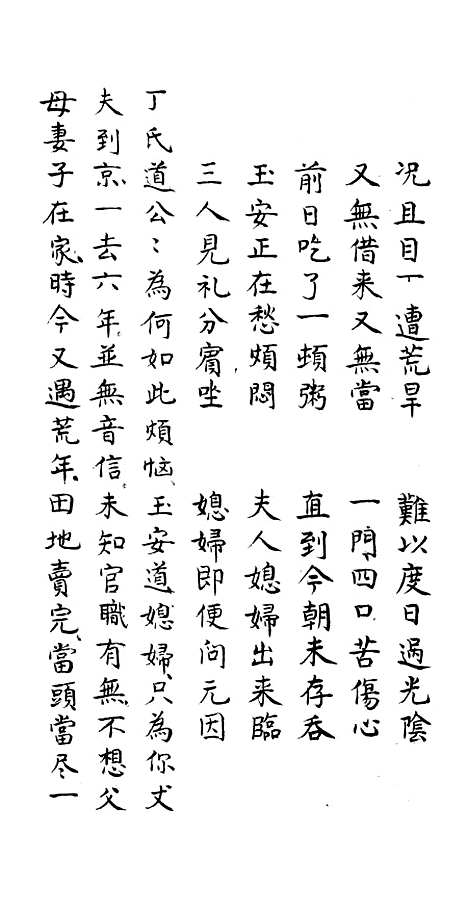 况且目丅遭荒旱　難以度日過光陰
又無借来又無當　一門四口苦傷心
前日吃了一頓粥　直到今朝未存吞
玉安正在愁煩悶　夫人媳婦出来臨
三人見礼分賓坐　媳婦即便问元因
丁氏道公〻為何如此煩恼、玉安道媳婦、只為你丈
夫到京、一去六年、並無音信、未知官職有無、不想父
母妻子在家、時今又遇荒年、田地賣完、當頭當尽一